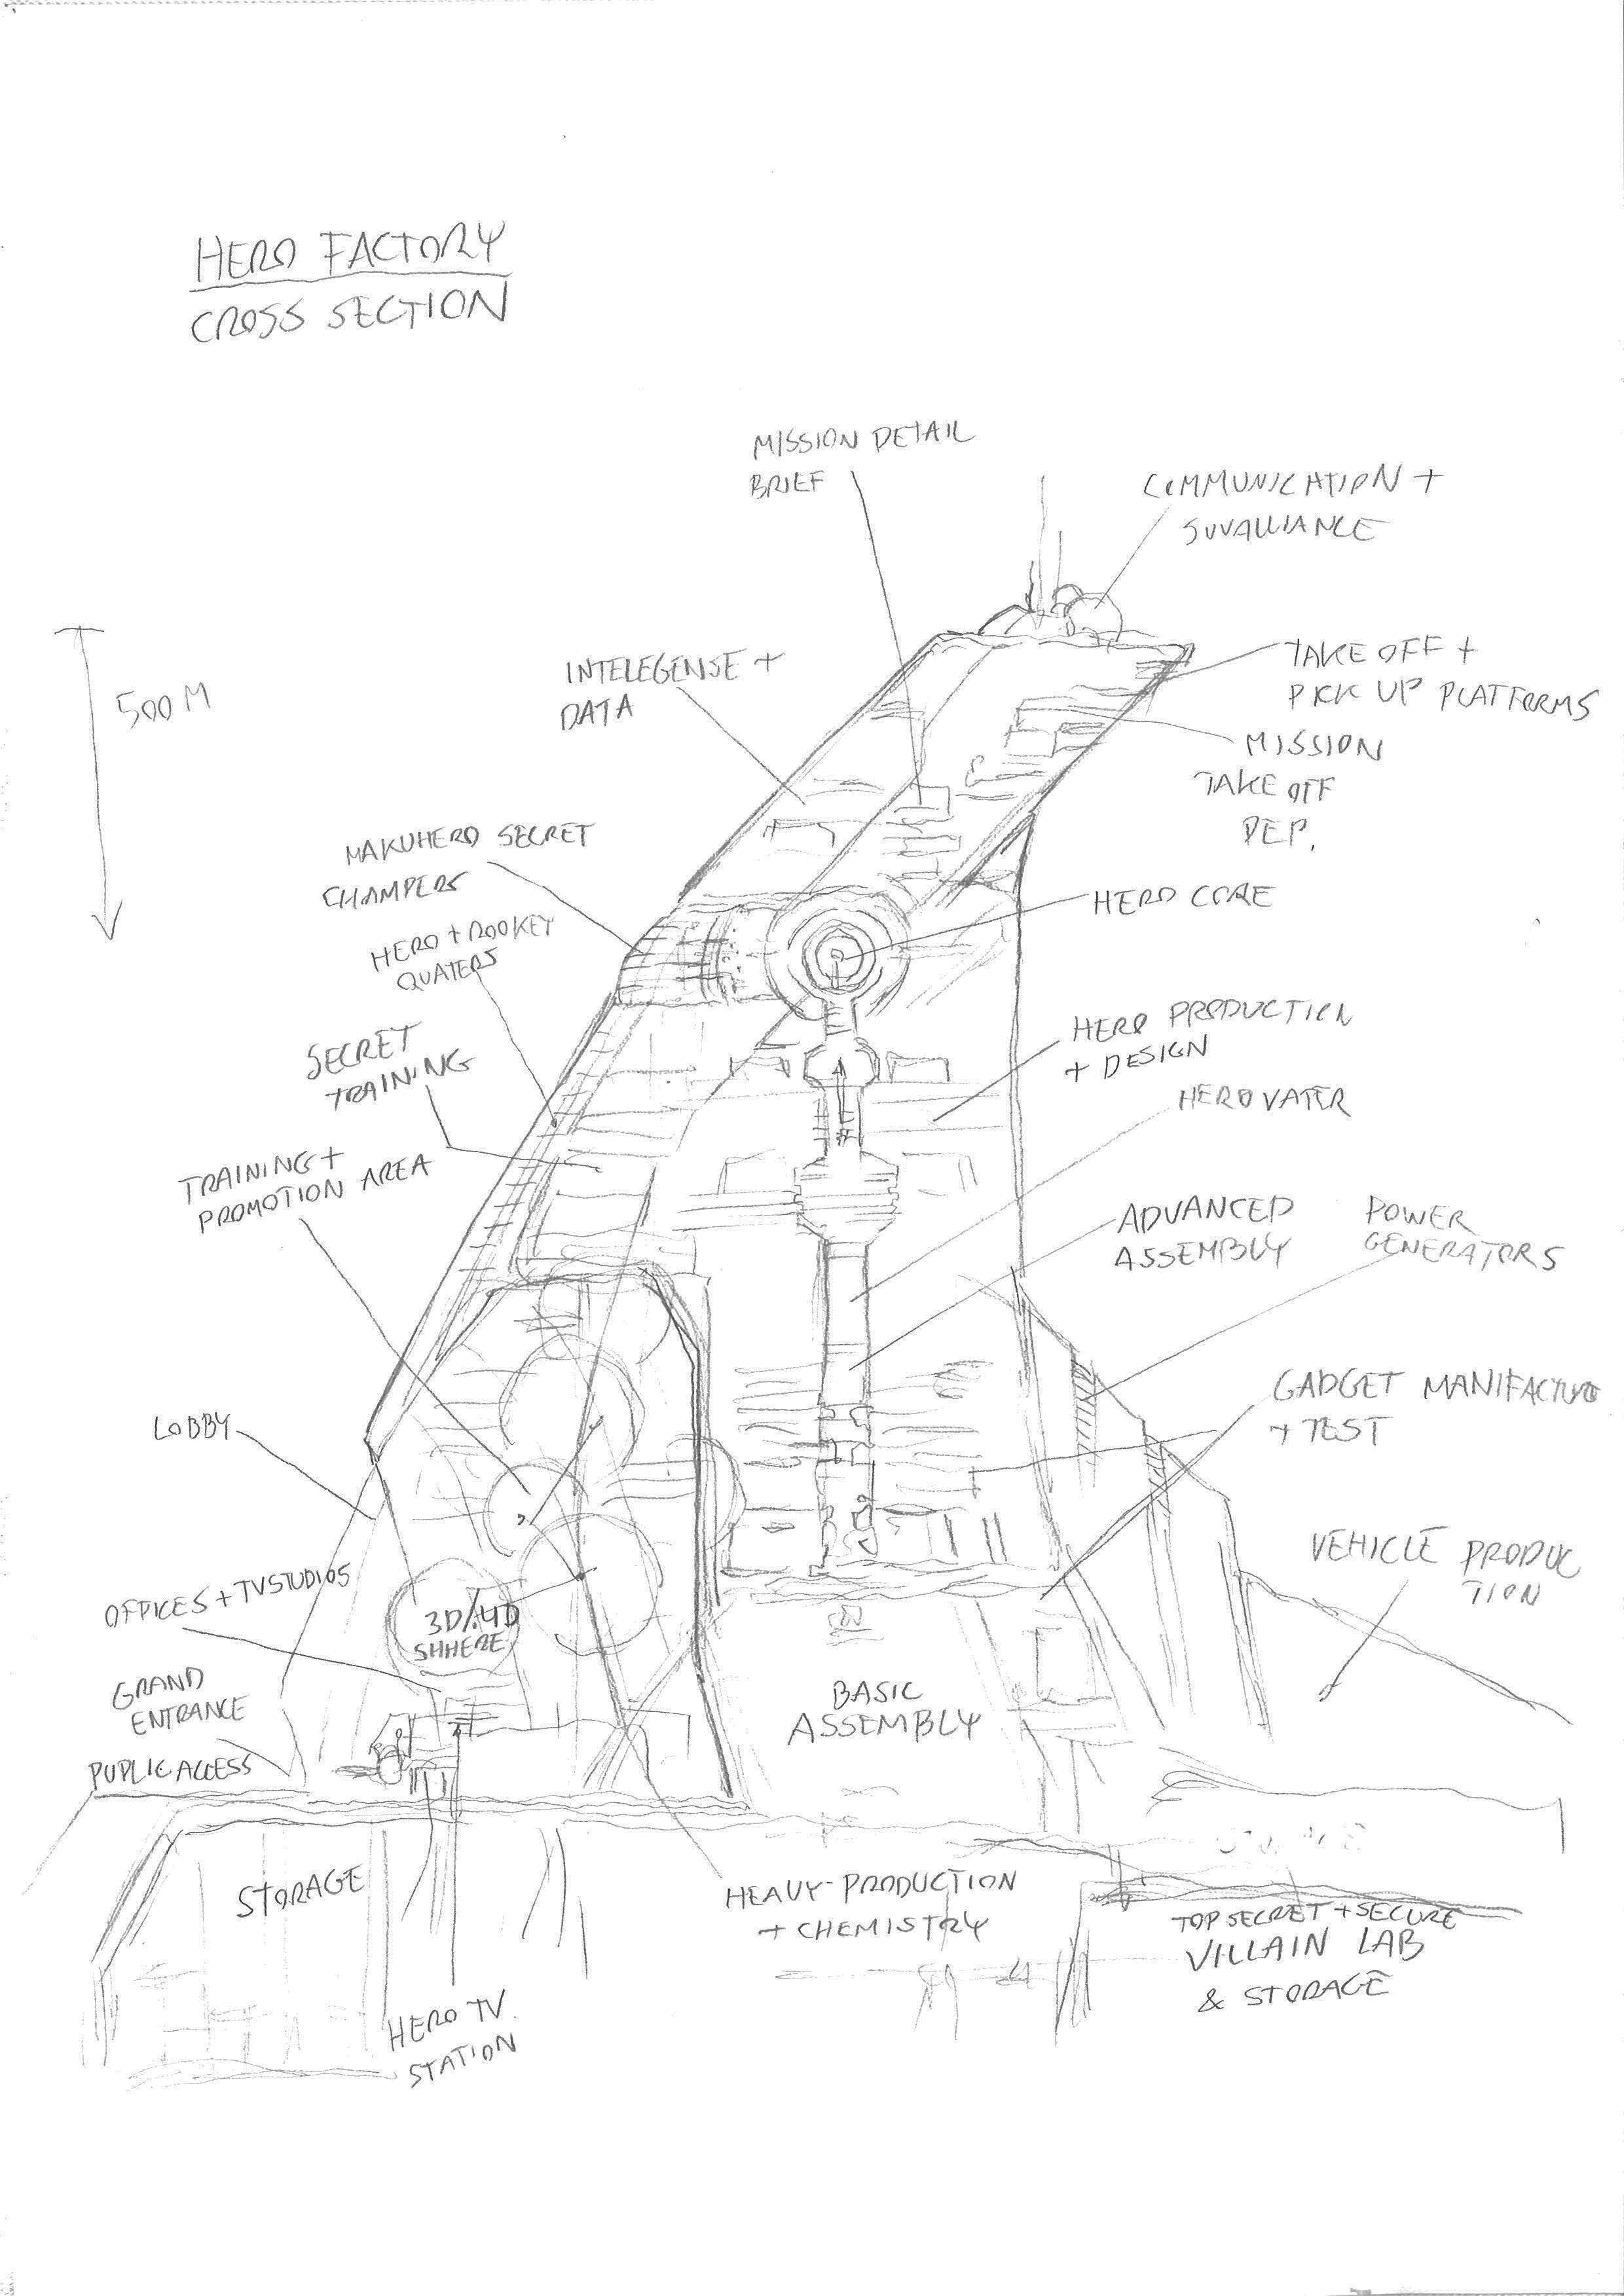 HERO FACTORY
CROSS SECTION
MISSION DETAIL
BRIEF
COMMUNICATION +
SUVALLIANCE
500 M
INTELEGENSE +
DATA
TAKE OFF +
PICK UP PLATFORMS
MISSION
TAKE OFF
DEP.
MAKUHERO SECRET
CHAMPERS
HERO CORE
HERO + ROOKEY
QUATERS
SECRET
TRAINING
HERO PRODUCTION
+ DESIGN
HEROVATER
TRAINING +
PROMOTION AREA
ADVANCED
ASSEMBLY
POWER
GENERATORS
GADGET MANIFACTURE
+ TEST
LOBBY
VEHICLE PRODUC
TION
OFFICES + TV STUDIOS
3D/4D
SHHERE
GRAND
ENTRANCE
BASIC
ASSEMBLY
PUPLIC ACCESS
STORAGE
HEAVY-PRODUCTION
+ CHEMISTRY
TOP SECRET + SECURE
VILLAIN LAB
& STORAGE
HERO TV
STATION